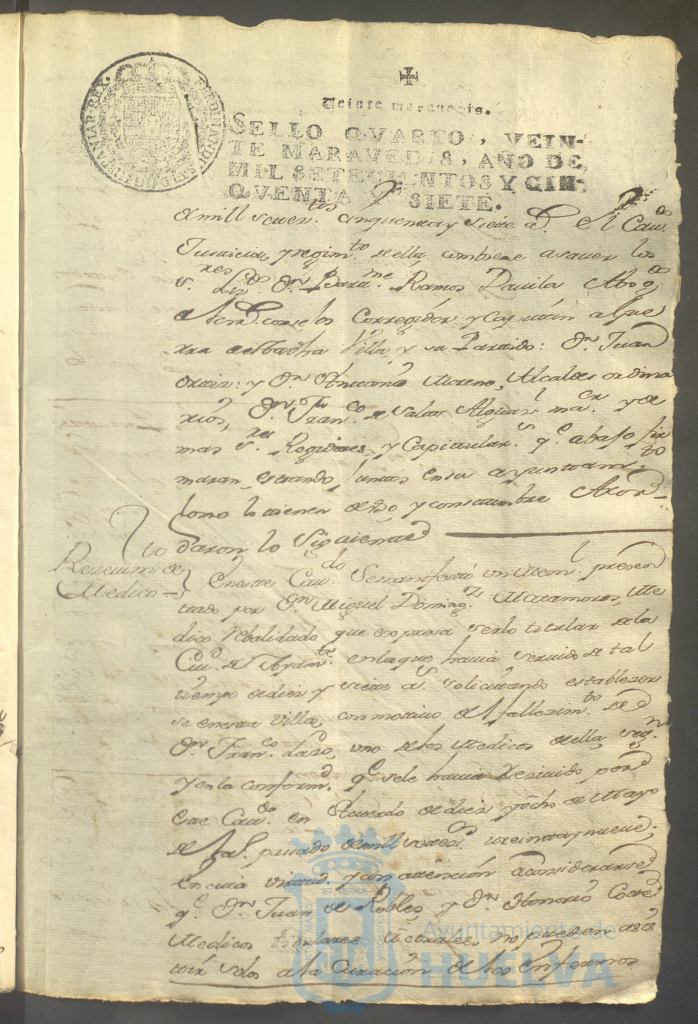 FERDINANDUS VI D G HISPANIAR REX
Veinte maravedis.
SELLO QVARTO, VEIN-
TE MARAVEDIS, AÑO DE
MIL SETECIENTOS Y CIN-
QVENTA Y SIETE.
de mill setez.tos cinquenta y siete a.s El Cav.do
Justicia, y regim.to de ella, combiene a saver los
s.res Liz.do D.n Bar.me Ramos Davila Abog.do
de los R.s Consejos Corregidor y Capitan a Gue
rra de esta dha Villa, y su Partido: D.n Juan
y D.n Antonio Moreno, Alcaldes ordina
rios, D.n Fran.co de Salas Alguas.l ma.or y de
mas s.res Regidores, y Capitular.s q.e abajo fir
maran, estando juntos en su ayuntam.to
como lo tienen de uso y constumbre Acor-
daron lo Siguiente
Reseuim.to de
Medico
En este Cav.do Se manifestó un Mem.l presen
tado por D.n Miguel Doming.z Matamoros, Me
dico Rebalidado que expresa serlo titular de la
Ciu.d de Ayam.te en la que havia servido de tal
tiempo de diez y siete a.s solicitando establezer
se en esta Villa, con motivo del fallesim.to de
D.n Fran.co Lazo, uno de los Medicos de ella, seg.n
y en la conform.d q.e se le havia Resiuido por
este Cav.do en Acuerdo de diez y ocho de Mayo
del pasado de mill setez.s treinta y nueve;
En cuia virtud y con atención a considerarse
q.e D.n Juan de Robles, y D.n Honorio
Medicos titulares actuales, no pueden asis
tir solos a la Curación de los enfermos
Ayuntamiento de
HUELVA